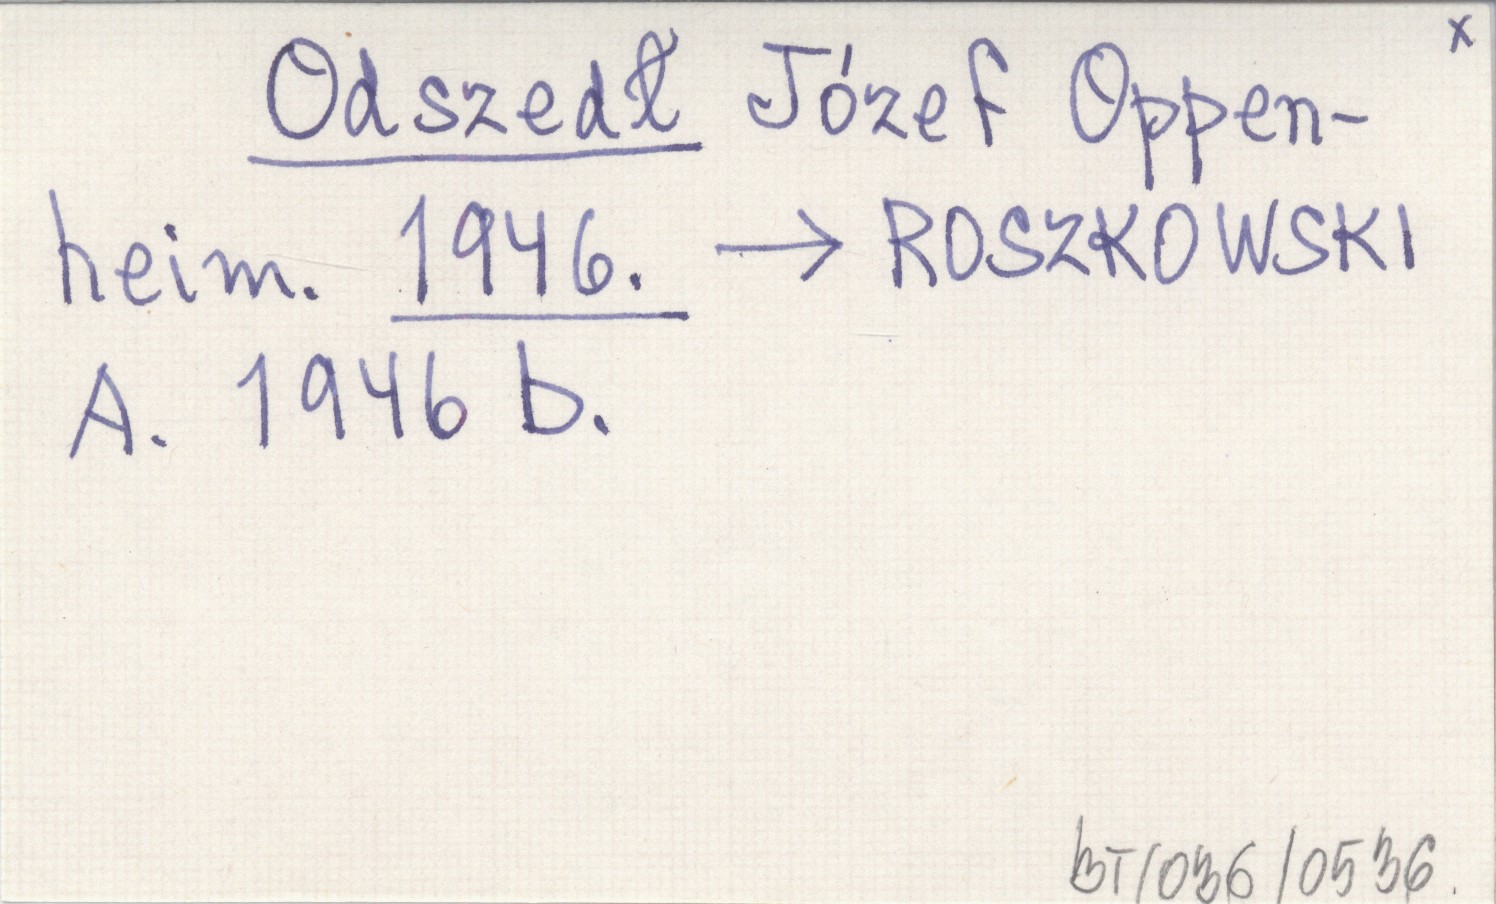 x
Odszedł Józef Oppen-
heim. 1946. → ROSZKOWSKI
A. 1946 b.
BT/036/0536.